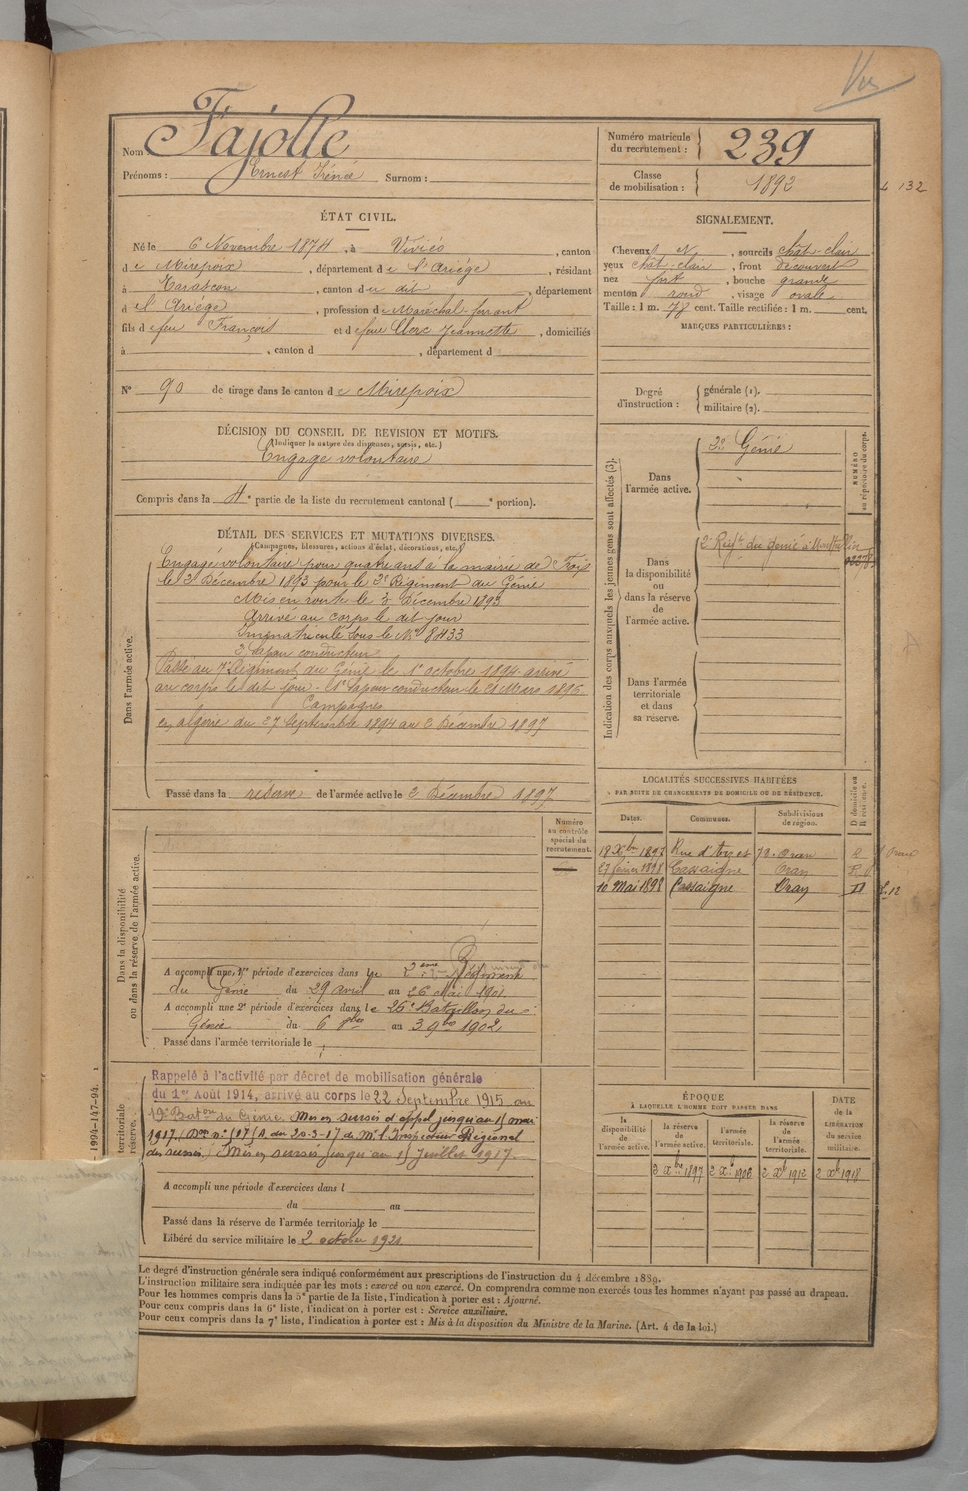 Vu
Nom : Fajolle
Prénoms : Ernest Irénée Surnom :
Numéro matricule du recrutement : 239
Classe de mobilisation : 1892
132
ÉTAT CIVIL.
Né le 6 Novembre 1874, à Viviès, canton
de Mirepoix, département de l'Ariége, résidant
à Tarascon, canton du dit, département
d el Ariége, profession de Maréchal-ferrant
fils de feu François et de feue Clerc Jeannette, domiciliés
à , canton d , département d
N° 90 de tirage dans le canton de Mirepoix
SIGNALEMENT.
Cheveux N, sourcils chât-clair
yeux chât-clair, front découvert
nez fort, bouche grande
menton rond, visage ovale
Taille : 1 m. 78 cent. Taille rectifiée : 1 m. cent.
MARQUES PARTICULIÈRES :
Degré d'instruction : générale (1).
militaire (2).
DÉCISION DU CONSEIL DE REVISION ET MOTIFS.
(Indiquer la nature des dispenses, sursis, etc.)
Engagé volontaire
Compris dans la 4e partie de la liste du recrutement cantonal ( e portion).
DÉTAIL DES SERVICES ET MUTATIONS DIVERSES.
(Campagnes, blessures, actions d'éclat, décorations, etc.)
Dans l'armée active.
Engagé volontaire pour quatre ans à la mairie de Foix
le 2 Décembre 1893 pour le 2e Régiment du Génie
Mis en route le 2 Décembre 1893
Arrivé au corps le dit jour
Immatriculé sous le No 8433
2e Sapeur conducteur
Passé au 7e Régiment du Génie le 1er octobre 1894 arrivé
au corps le dit jour - 1er Sapeur conducteur le 21 Mars 1896
Campagnes
en algérie du 27 Septembre 1894 au 2 Décembre 1897
Passé dans la réserve de l'armée active le 2 Décembre 1897
Indication des corps auxquels les jeunes gens sont affectés (3).
Dans l'armée active.
2e Génie
NUMÉRO au répertoire du corps.
Dans la disponibilité ou dans la réserve de l'armée active.
2e Regt du Génie à Montpellier
Dans l'armée territoriale et dans sa réserve.
LOCALITÉS SUCCESSIVES HABITÉES
PAR SUITE DE CHANGEMENTS DE DOMICILE OU DE RÉSIDENCE.
Dates. Communes. Subdivisions de région. D domicile ou R résidence.
18 Xbre 1897 Rue d'Arzet 72 - Oran R
27 février 1898 Cassaigne Oran R
10 Mai 1898 Cassaigne Oran D
Numéro au contrôle spécial du recrutement.
Dans la disponibilité ou dans la réserve de l'armée active.
A accompli une 1re période d'exercices dans le 2ème Régiment
du Génie du 29 avril au 26 Mai 1901
A accompli une 2e période d'exercices dans le 26e Bataillon du
Génie du 6 8bre au 3 9bre 1902
Passé dans l'armée territoriale le
Rappelé à l'activité par décret de mobilisation générale
du 1er Août 1914, arrivé au corps le 22 Septembre 1915 au
19e Baton du Génie. Mis en sursis d'appel jusqu'au 15 mai
1917. A du 20-3-17 de Mr l'Inspecteur Régional
des sursis.) Mis en sursis jusqu'au 15 juillet 1917.
A accompli une période d'exercices dans l
du au
Passé dans la réserve de l'armée territoriale le
Libéré du service militaire le 2 octobre 1921
ÉPOQUE
À LAQUELLE L'HOMME DOIT PASSER DANS
la disponibilité de l'armée active. la réserve de l'armée active. l'armée territoriale. la réserve de l'armée territoriale.
DATE de la LIBÉRATION du service militaire.
2 Xbre 1897 2 Xb 1906 2 Xb 1912 2 Xb 1918
1994-147-94.
Le degré d'instruction générale sera indiqué conformément aux prescriptions de l'instruction du 4 décembre 1889.
L'instruction militaire sera indiquée par les mots : exercé ou non exercé. On comprendra comme non exercés tous les hommes n'ayant pas passé au drapeau.
Pour les hommes compris dans la 5e partie de la liste, l'indication à porter est : Ajourné.
Pour ceux compris dans la 6e liste, l'indication à porter est : Service auxiliaire.
Pour ceux compris dans la 7e liste, l'indication à porter est : Mis à la disposition du Ministre de la Marine. (Art. 4 de la loi.)